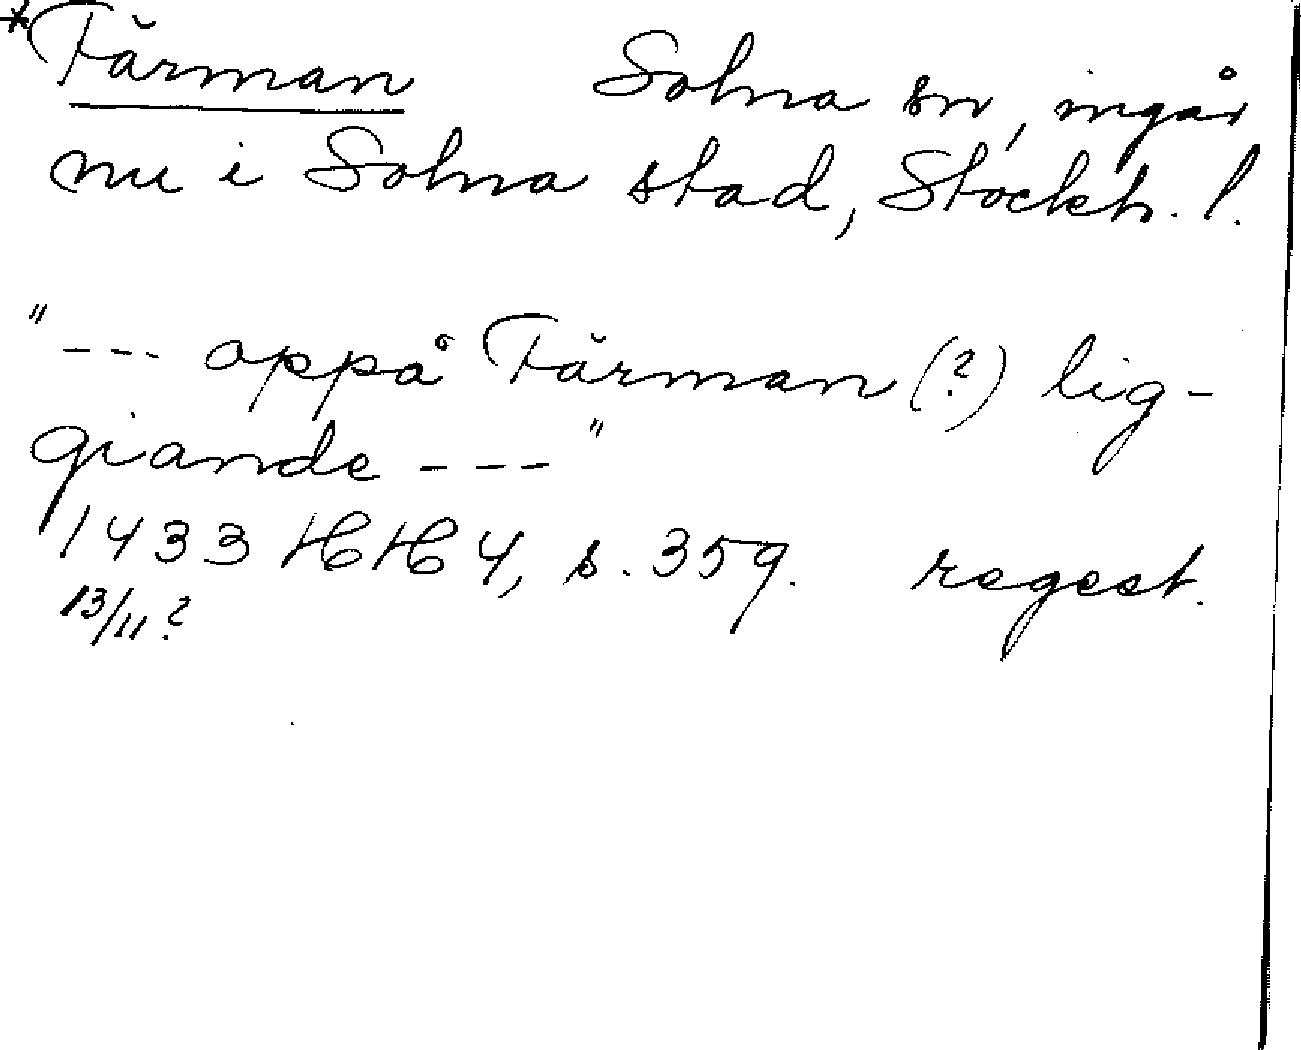 *Färman Solna sn, ingår
nu i Solna stad, Stockh. l.
"--- oppå Färman (?) lig-
giande ---"
1433 HH 4, s. 359. regest.
13/11?